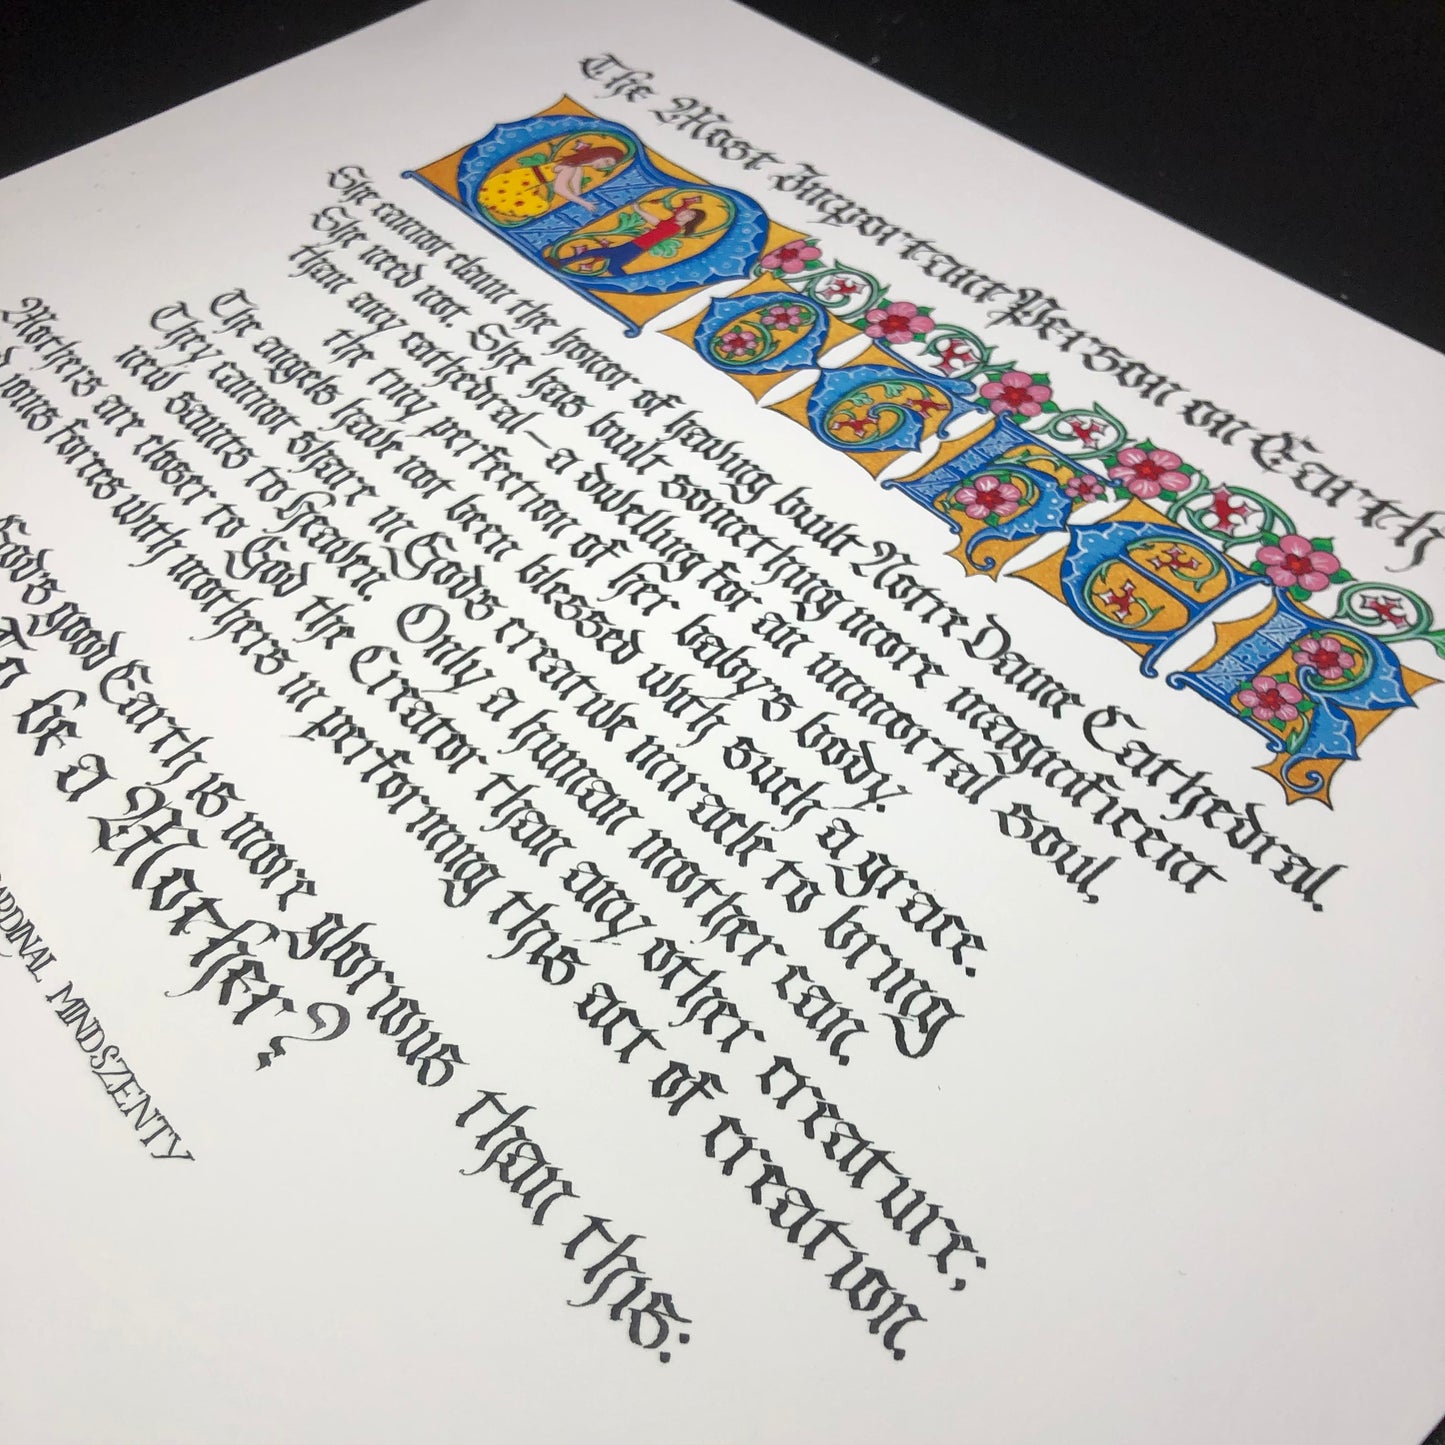 The Most Important Person on Earth
MOTHER
She cannot claim the honor of having built Notre Dame Cathedral.
She need not. She has built something more magnificent
than any cathedral—a dwelling for an immortal soul,
the tiny perfection of her baby's body.
The angels have not been blessed with such a grace.
They cannot share in God's creative miracle to bring
new saints to Heaven. Only a human mother can.
Mothers are closer to God the Creator than any other creature;
joins forces with mothers in performing this act of creation.
God's good Earth is more glorious than this:
To be a Mother?
ARDINAL MINDSZENTY